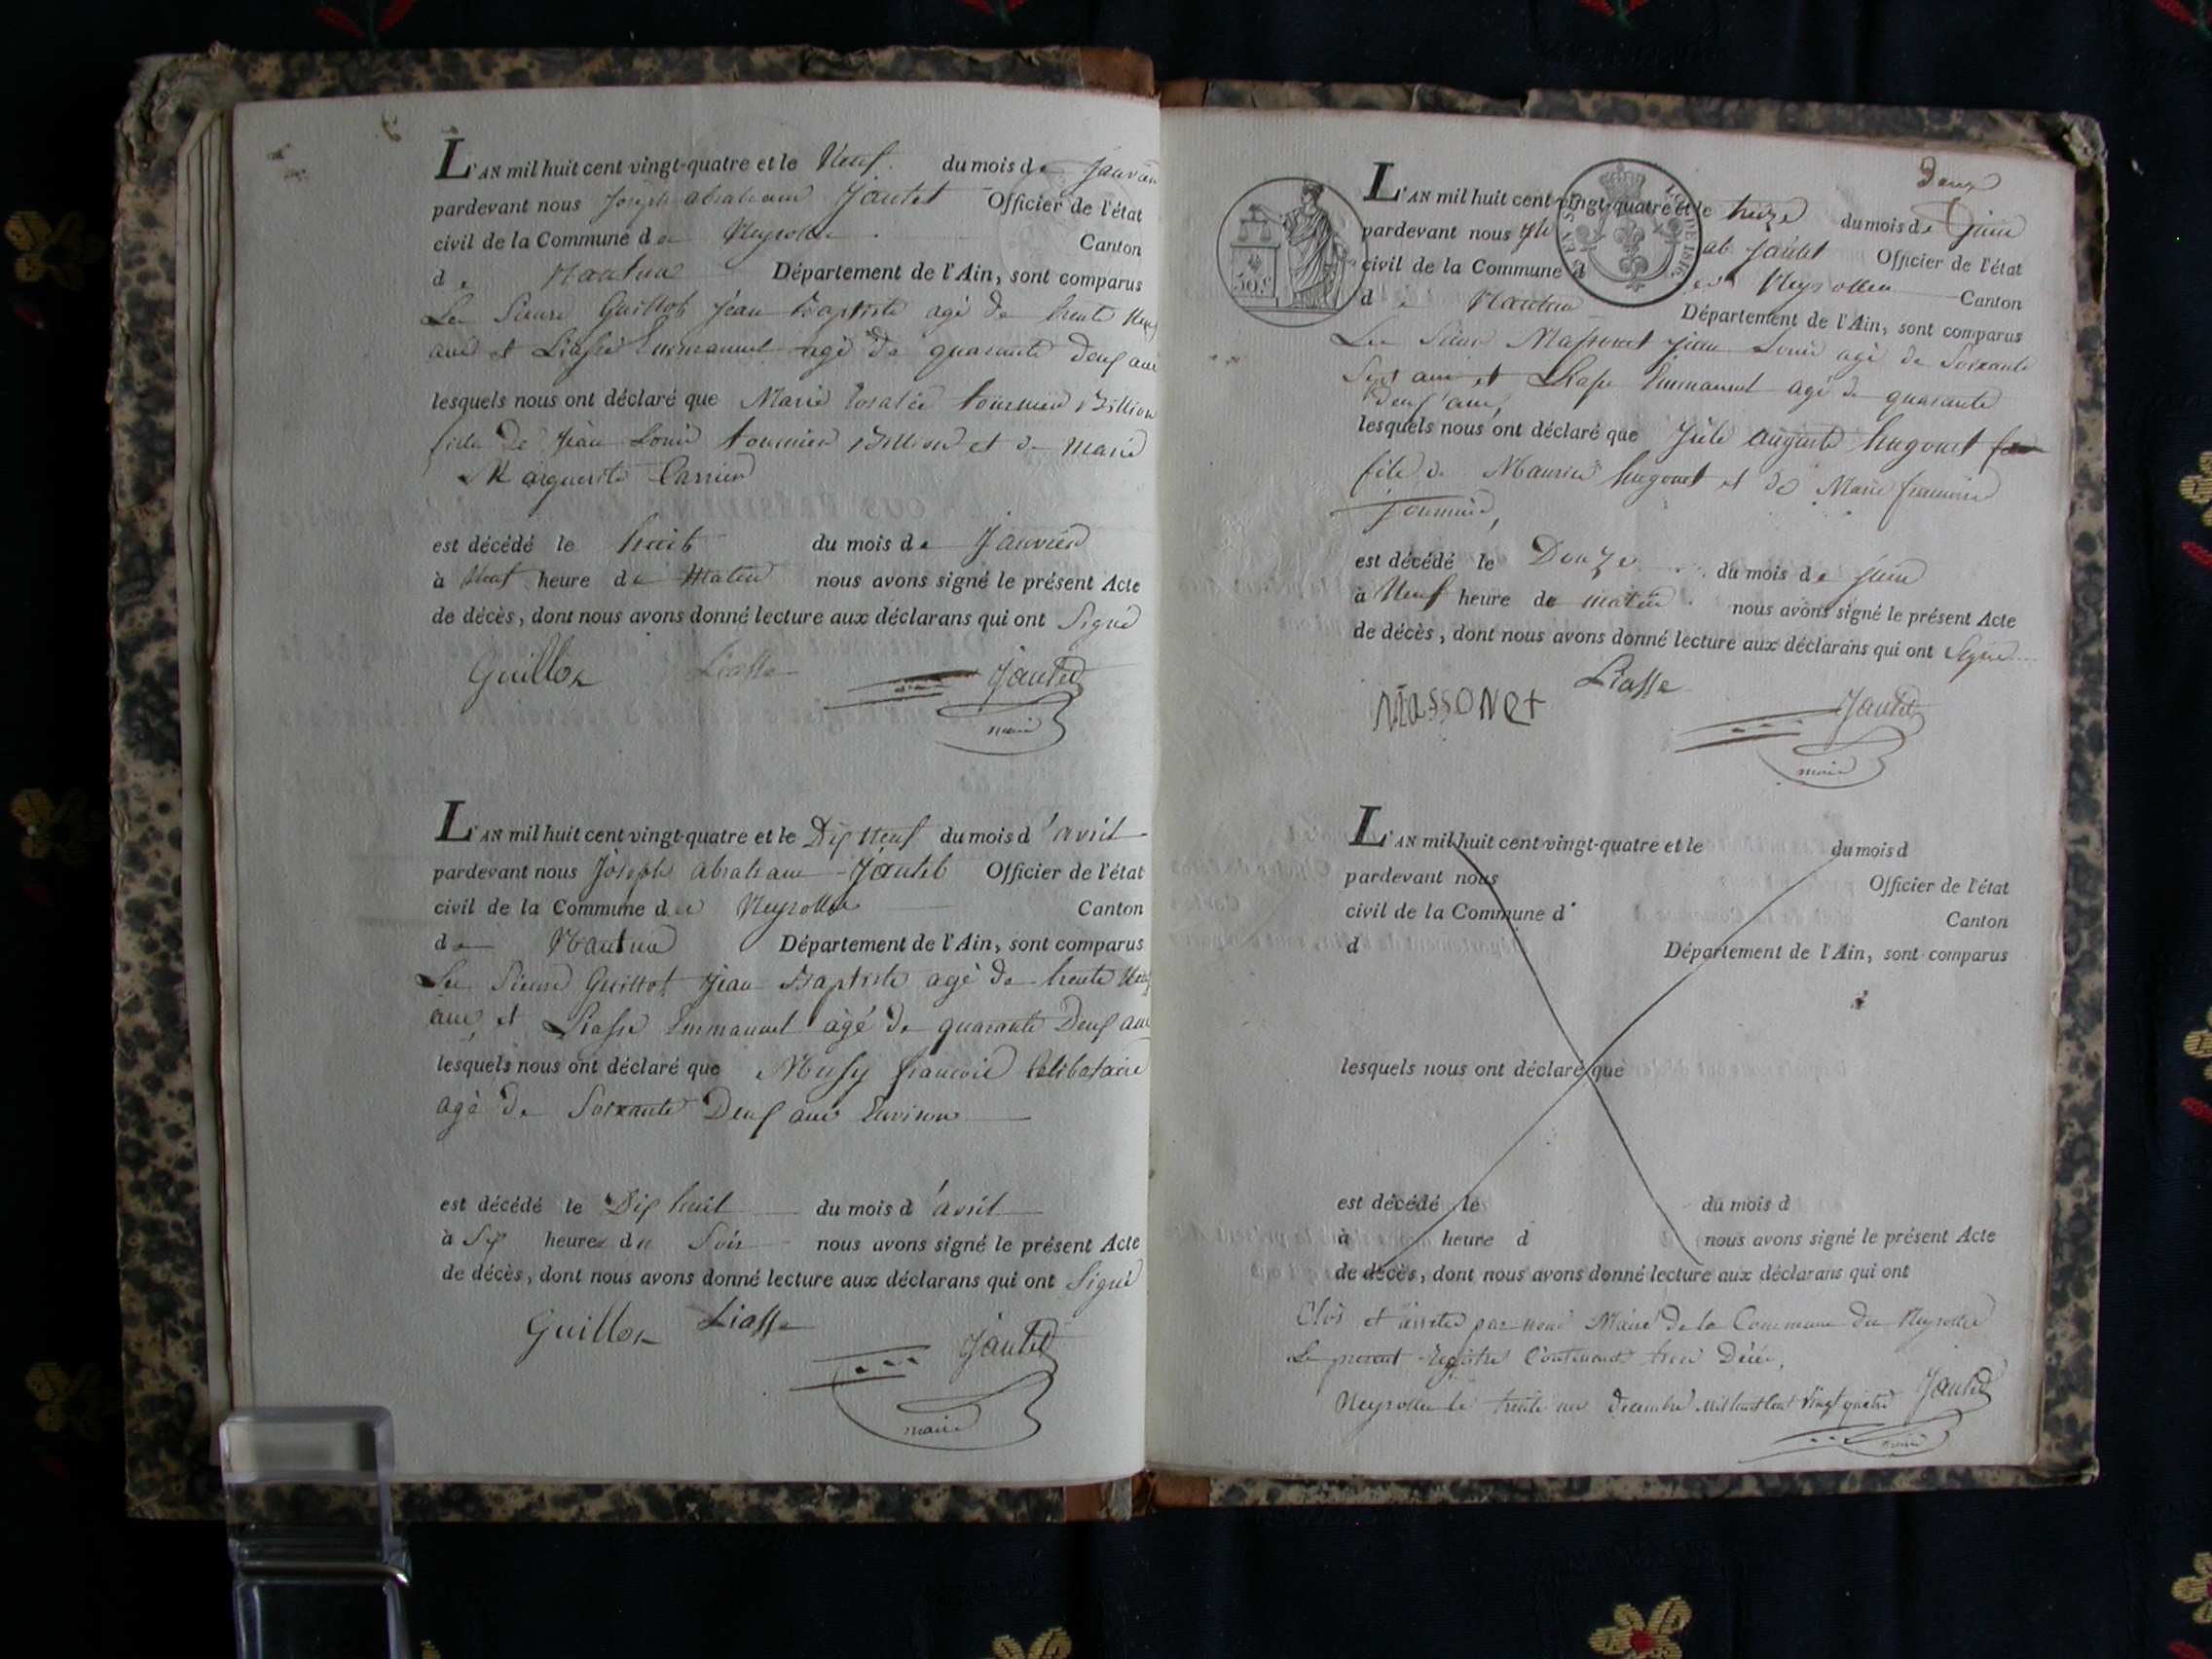 L'AN mil huit cent vingt-quatre et le Neuf du mois de Janvier
pardevant nous Joseph abraham Jantet Officier de l'état
civil de la Commune de Neyrolles Canton
de Nantua Département de l'Ain, sont comparus
Les Sieurs Guillot Jean Baptiste agé de trente Neuf
ans et Liasse Emmanuel agé de quarante deux ans
lesquels nous ont déclaré que Marie tournier Billion
fille de Jean Louis tournier Billion et de Marie
Marguerite Carrier
est décédé le huit du mois de Janvier
à Neuf heure du Matin nous avons signé le présent Acte
de décès, dont nous avons donné lecture aux déclarans qui ont Signé
Guillot Liasse Jantet
maire
L'AN mil huit cent vingt-quatre et le Dix Neuf du mois d'avril
pardevant nous Joseph abraham Jantet Officier de l'état
civil de la Commune de Neyrolles Canton
de Nantua Département de l'Ain, sont comparus
Les Sieurs Guillot Jean Baptiste agé de trente Neuf
ans et Liasse Emmanuel agé de quarante Deux ans
lesquels nous ont déclaré que Musy francois Celibataire
agé de Soixante Deux ans Environ
est décédé le Dix huit du mois d'avril
à Six heures du Soir nous avons signé le présent Acte
de décès, dont nous avons donné lecture aux déclarans qui ont Signé
Guillot Liasse
Jantet
maire
Deux
L'AN mil huit cent vingt-quatre et le treize du mois de Juin
pardevant nous ab Jantet Officier de l'état
civil de la Commune d Neyrolles Canton
de Nantua Département de l'Ain, sont comparus
50 c
LOI DE 1816
Les Sieurs Massonet Jean Louis agé de Soixante
Sept ans et Liasse Emmanuel agé de quarante
deux ans,
lesquels nous ont déclaré que auguste hugonet
fils de Maurice hugonet et de Marie francoise
Tournier,
est décédé le Douze du mois de Juin
à Neuf heure du matin nous avons signé le présent Acte
de décès, dont nous avons donné lecture aux déclarans qui ont Signé
Massonet Liasse Jantet
maire
L'AN mil huit cent vingt-quatre et le du mois d
pardevant nous Officier de l'état
civil de la Commune d Canton
d Département de l'Ain, sont comparus
lesquels nous ont déclaré que
est décédé le du mois d
à heure d nous avons signé le présent Acte
de décès, dont nous avons donné lecture aux déclarans qui ont
Clos et arrêté par nous Maire de la Commune de Neyrolles
Le present Registre Contenant trois Décès,
Neyrolles le trente un decembre Mil huit Cent Vingt quatre Jantet
maire